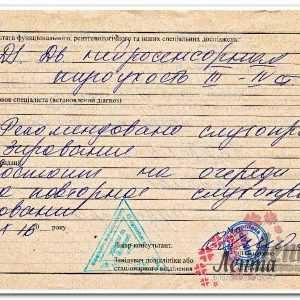 тати функціонального, рентгенологічного та інших спеціальних досліджень
DS. Дв. нейросенсорная
тугоухость III - IV ст
новок спеціаліста (встановлений діагноз)
Рекомендовано слухопро
зирование
на очереди
повторное слухопро
16
року
Лікар-консультант
Завідувач поліклініки або
стаціонарного відділення
Лепта